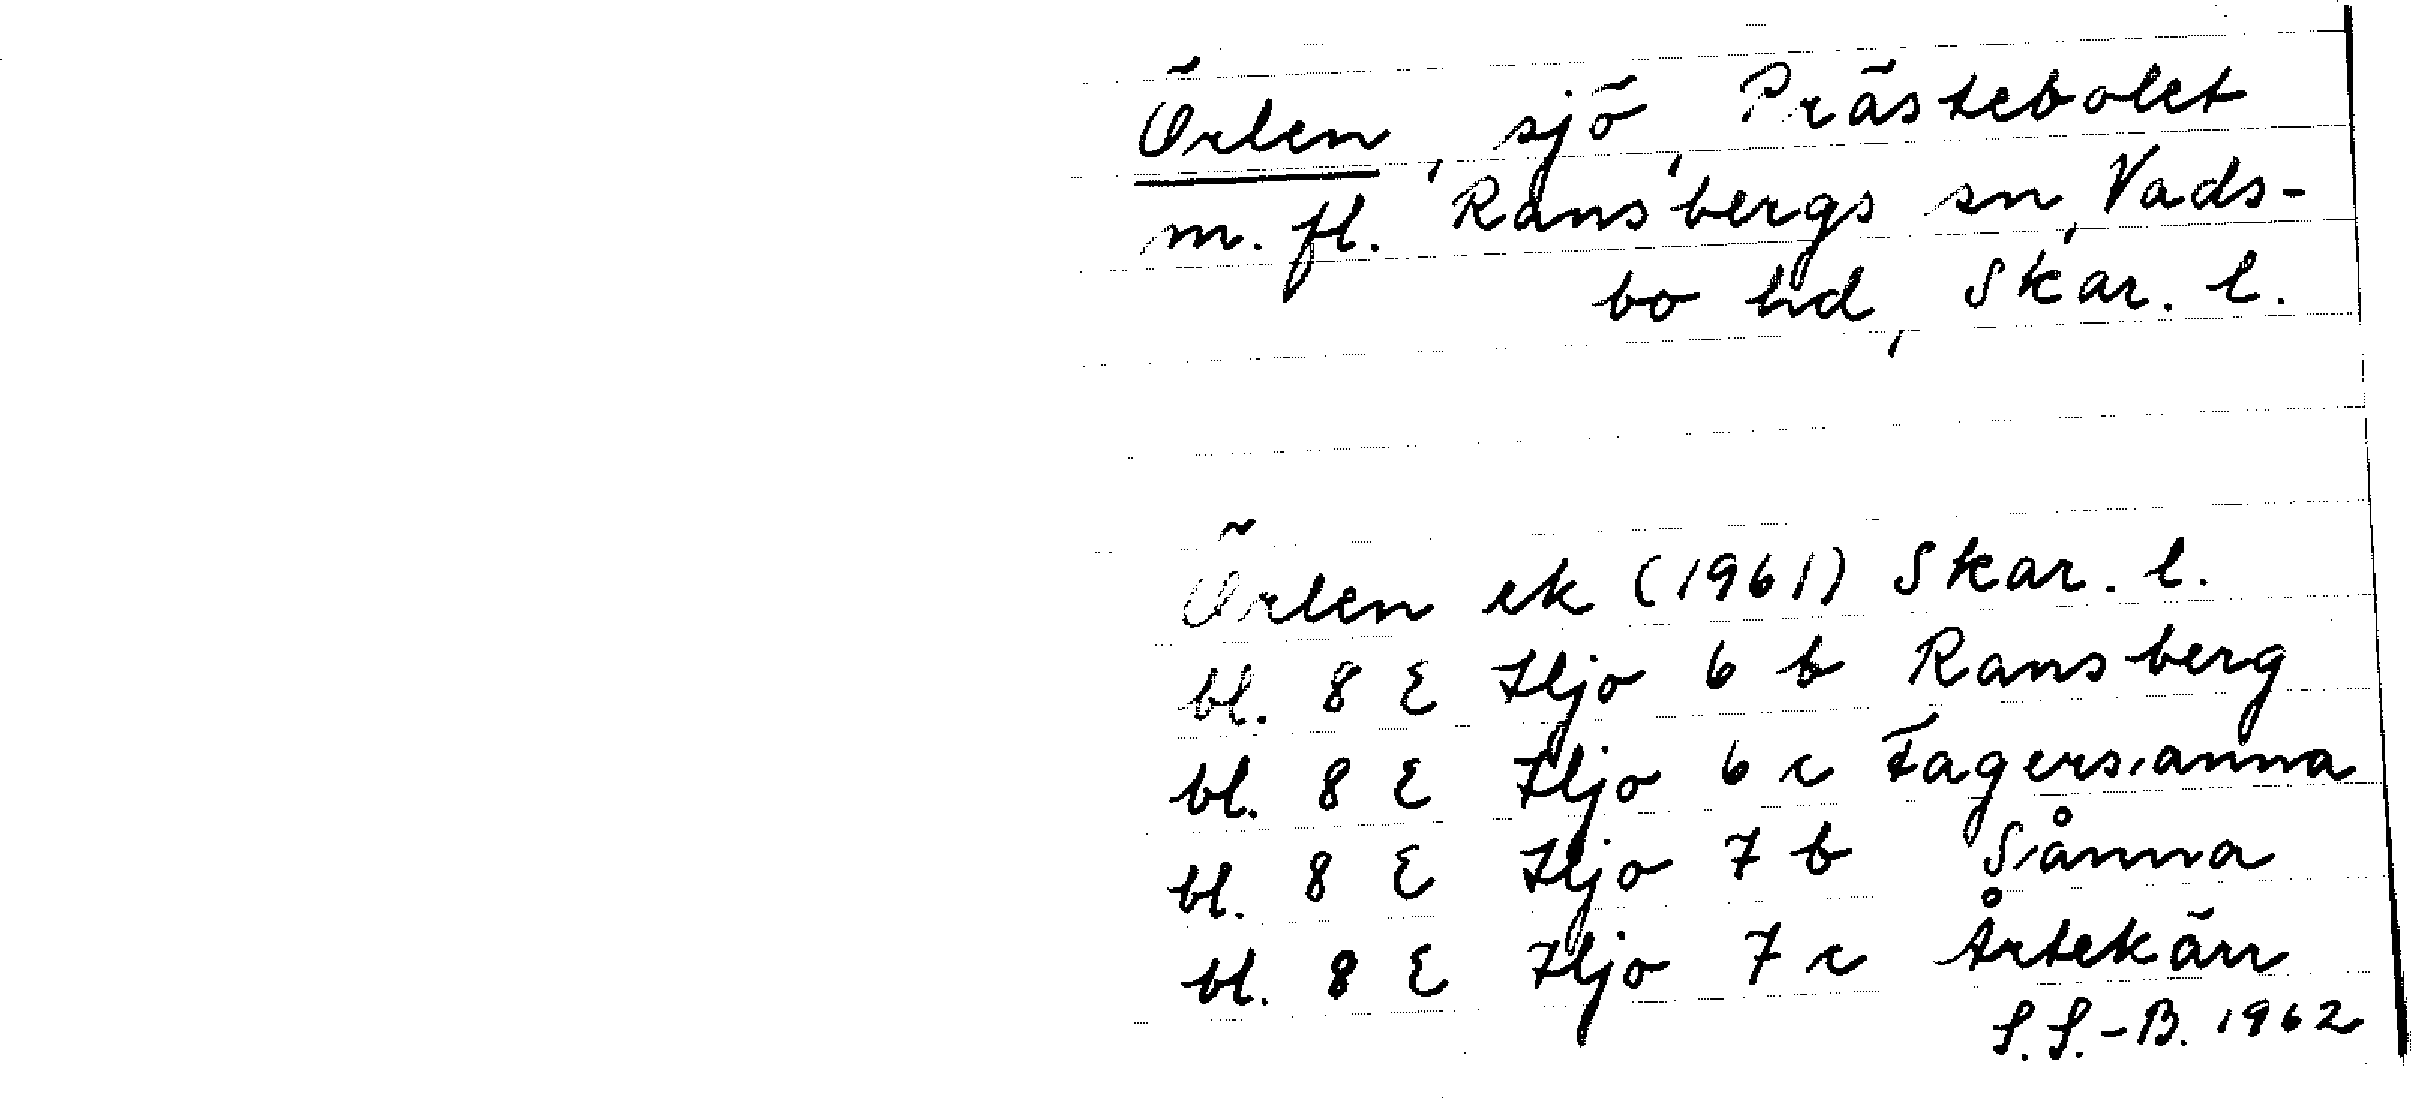 Örlen, sjö, Prästebolet
m. fl. Ransbergs sn, Vads-
bo hd, Skar. l.
Örlen ek (1961) Skar. l.
bl. 8 E Hjo 6 b Ransberg
bl. 8 E Hjo 6 c Fagersanna
bl. 8 E Hjo 7 b Sånna
bl. 8 E Hjo 7 c Årtekärr
S. S.-B. 1962